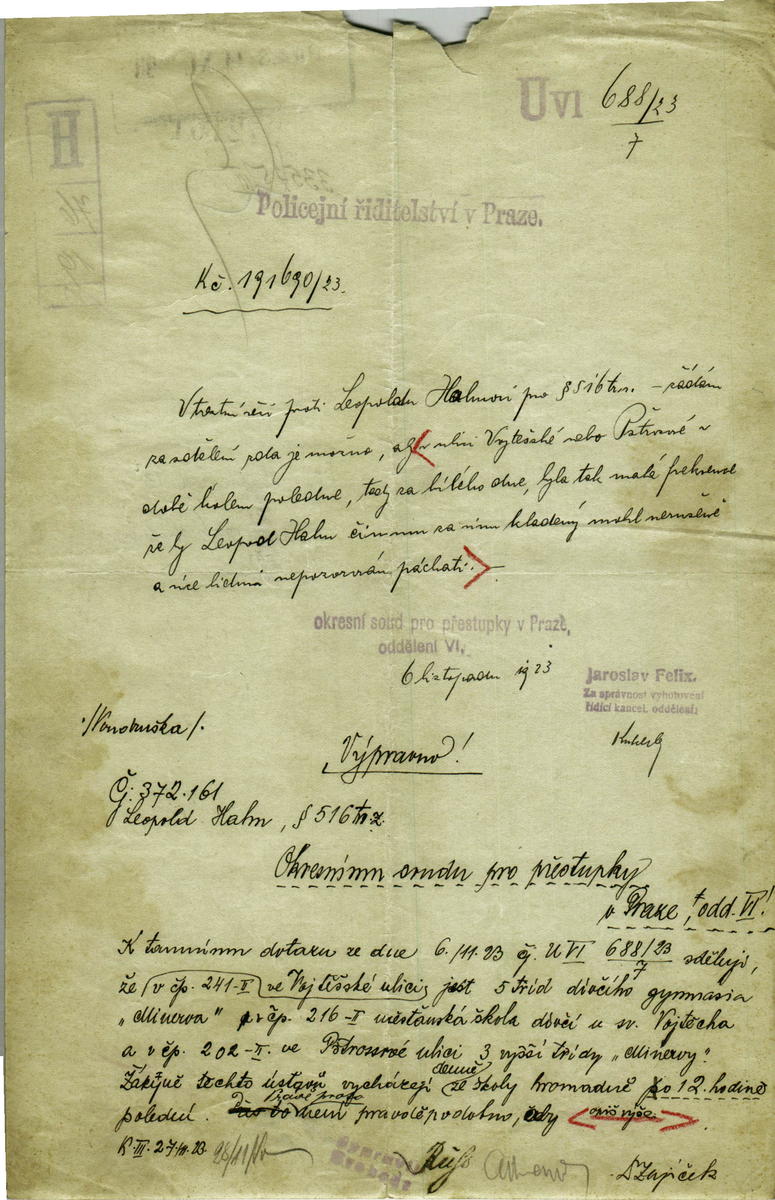 U VI 688/23
7
H
Policejní řiditelství v Praze.
Kč. 191690/23.
V trestní věci proti Leopoldu Hahnovi pro § 516 tr. z. – žádám
za sdělení zda je možno, aby v ulici Vojtěšské nebo Pštrosově v
době kolem poledne, tedy za bílého dne, byla tak malá frekvence
že by Leopold Hahn čin mu za vinu kladený mohl nerušeně
a více lidmi nepozorován páchati. –
okresní soud pro přestupky v Praze,
oddělení VI.
6 listopadu 1923
Jaroslav Felix.
Za správnost vyhotovení
řídící kancel. oddělení:
Výpravno!
Č.j. 372.161
Leopold Hahn, § 516 tr. z.
Okresnímu soudu pro přestupky
v Praze, odd. VI!
K tamnímu dotazu ze dne 6./11.23 čj. U VI 688/23 sděluji,
7
že v čp. 241-II ve Vojtěšské ulici jest 5 tříd dívčího gymnasia
„Minerva" v čp. 216-II měšťanská škola dívčí u sv. Vojtěcha
a v čp. 202-II. ve Pštrossově ulici 3 vyšší třídy „Minervy".
Žákyně těchto ústavů vycházejí denně ze školy hromadně po 12. hodině
polední. Právě proto není pravděpodobno, aby opiš výše.
K III. 27.11.23 28/11
Dr Zajíček